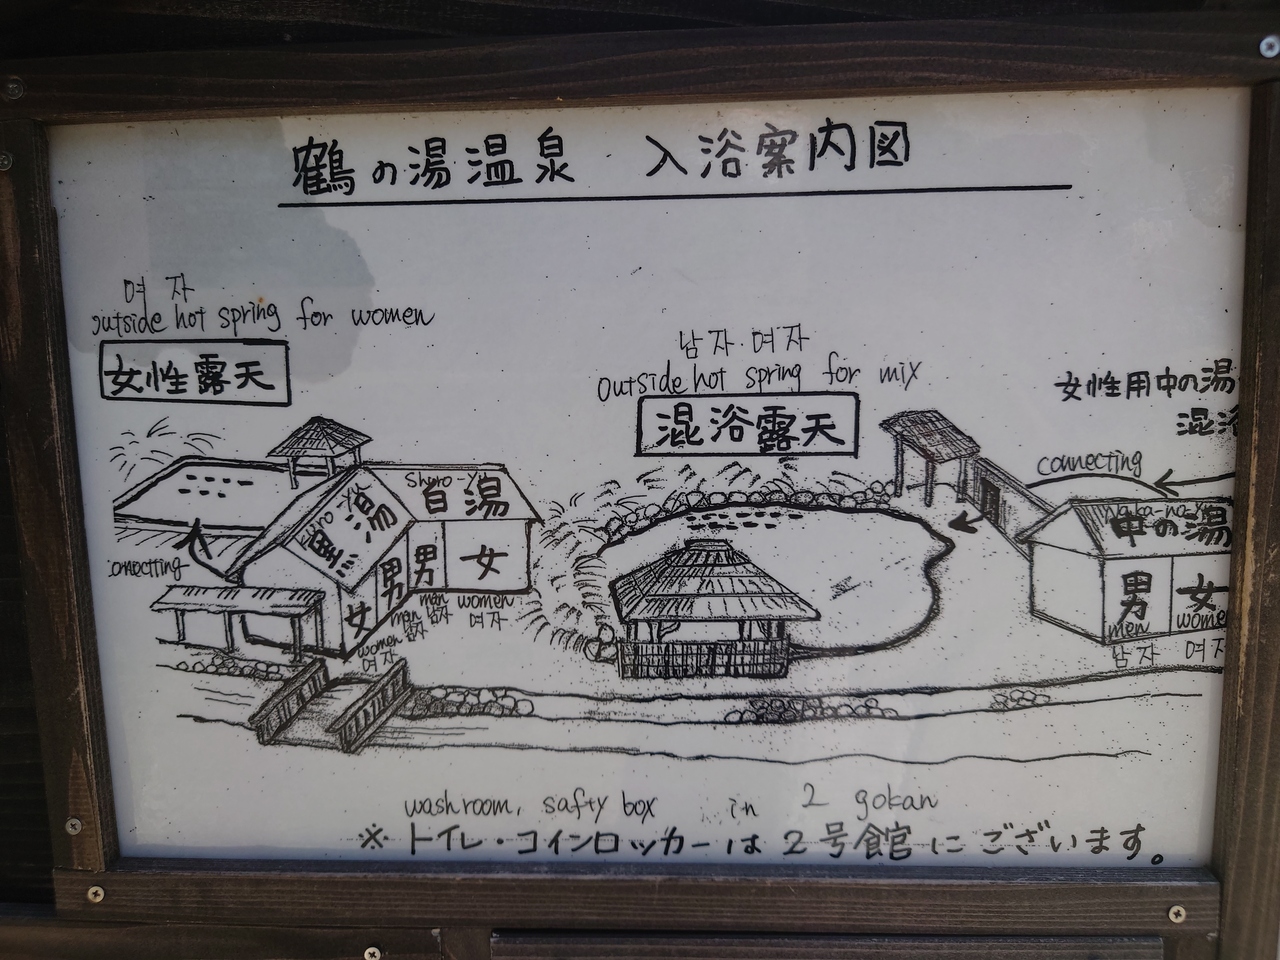 鶴の湯温泉 入浴案内図
여자
outside hot spring for women
女性露天
남자·여자
outside hot spring for mix
混浴露天
女性用中の湯
混浴
connecting
Shiro-yu
白湯
黒湯
connecting
女
男
男
女
women
여자
men
남자
men
남자
women
여자
Naka-no-yu
中の湯
男
女
men
women
남자
여자
washroom, safty box in 2 gokan
※トイレ・コインロッカーは2号館にございます。